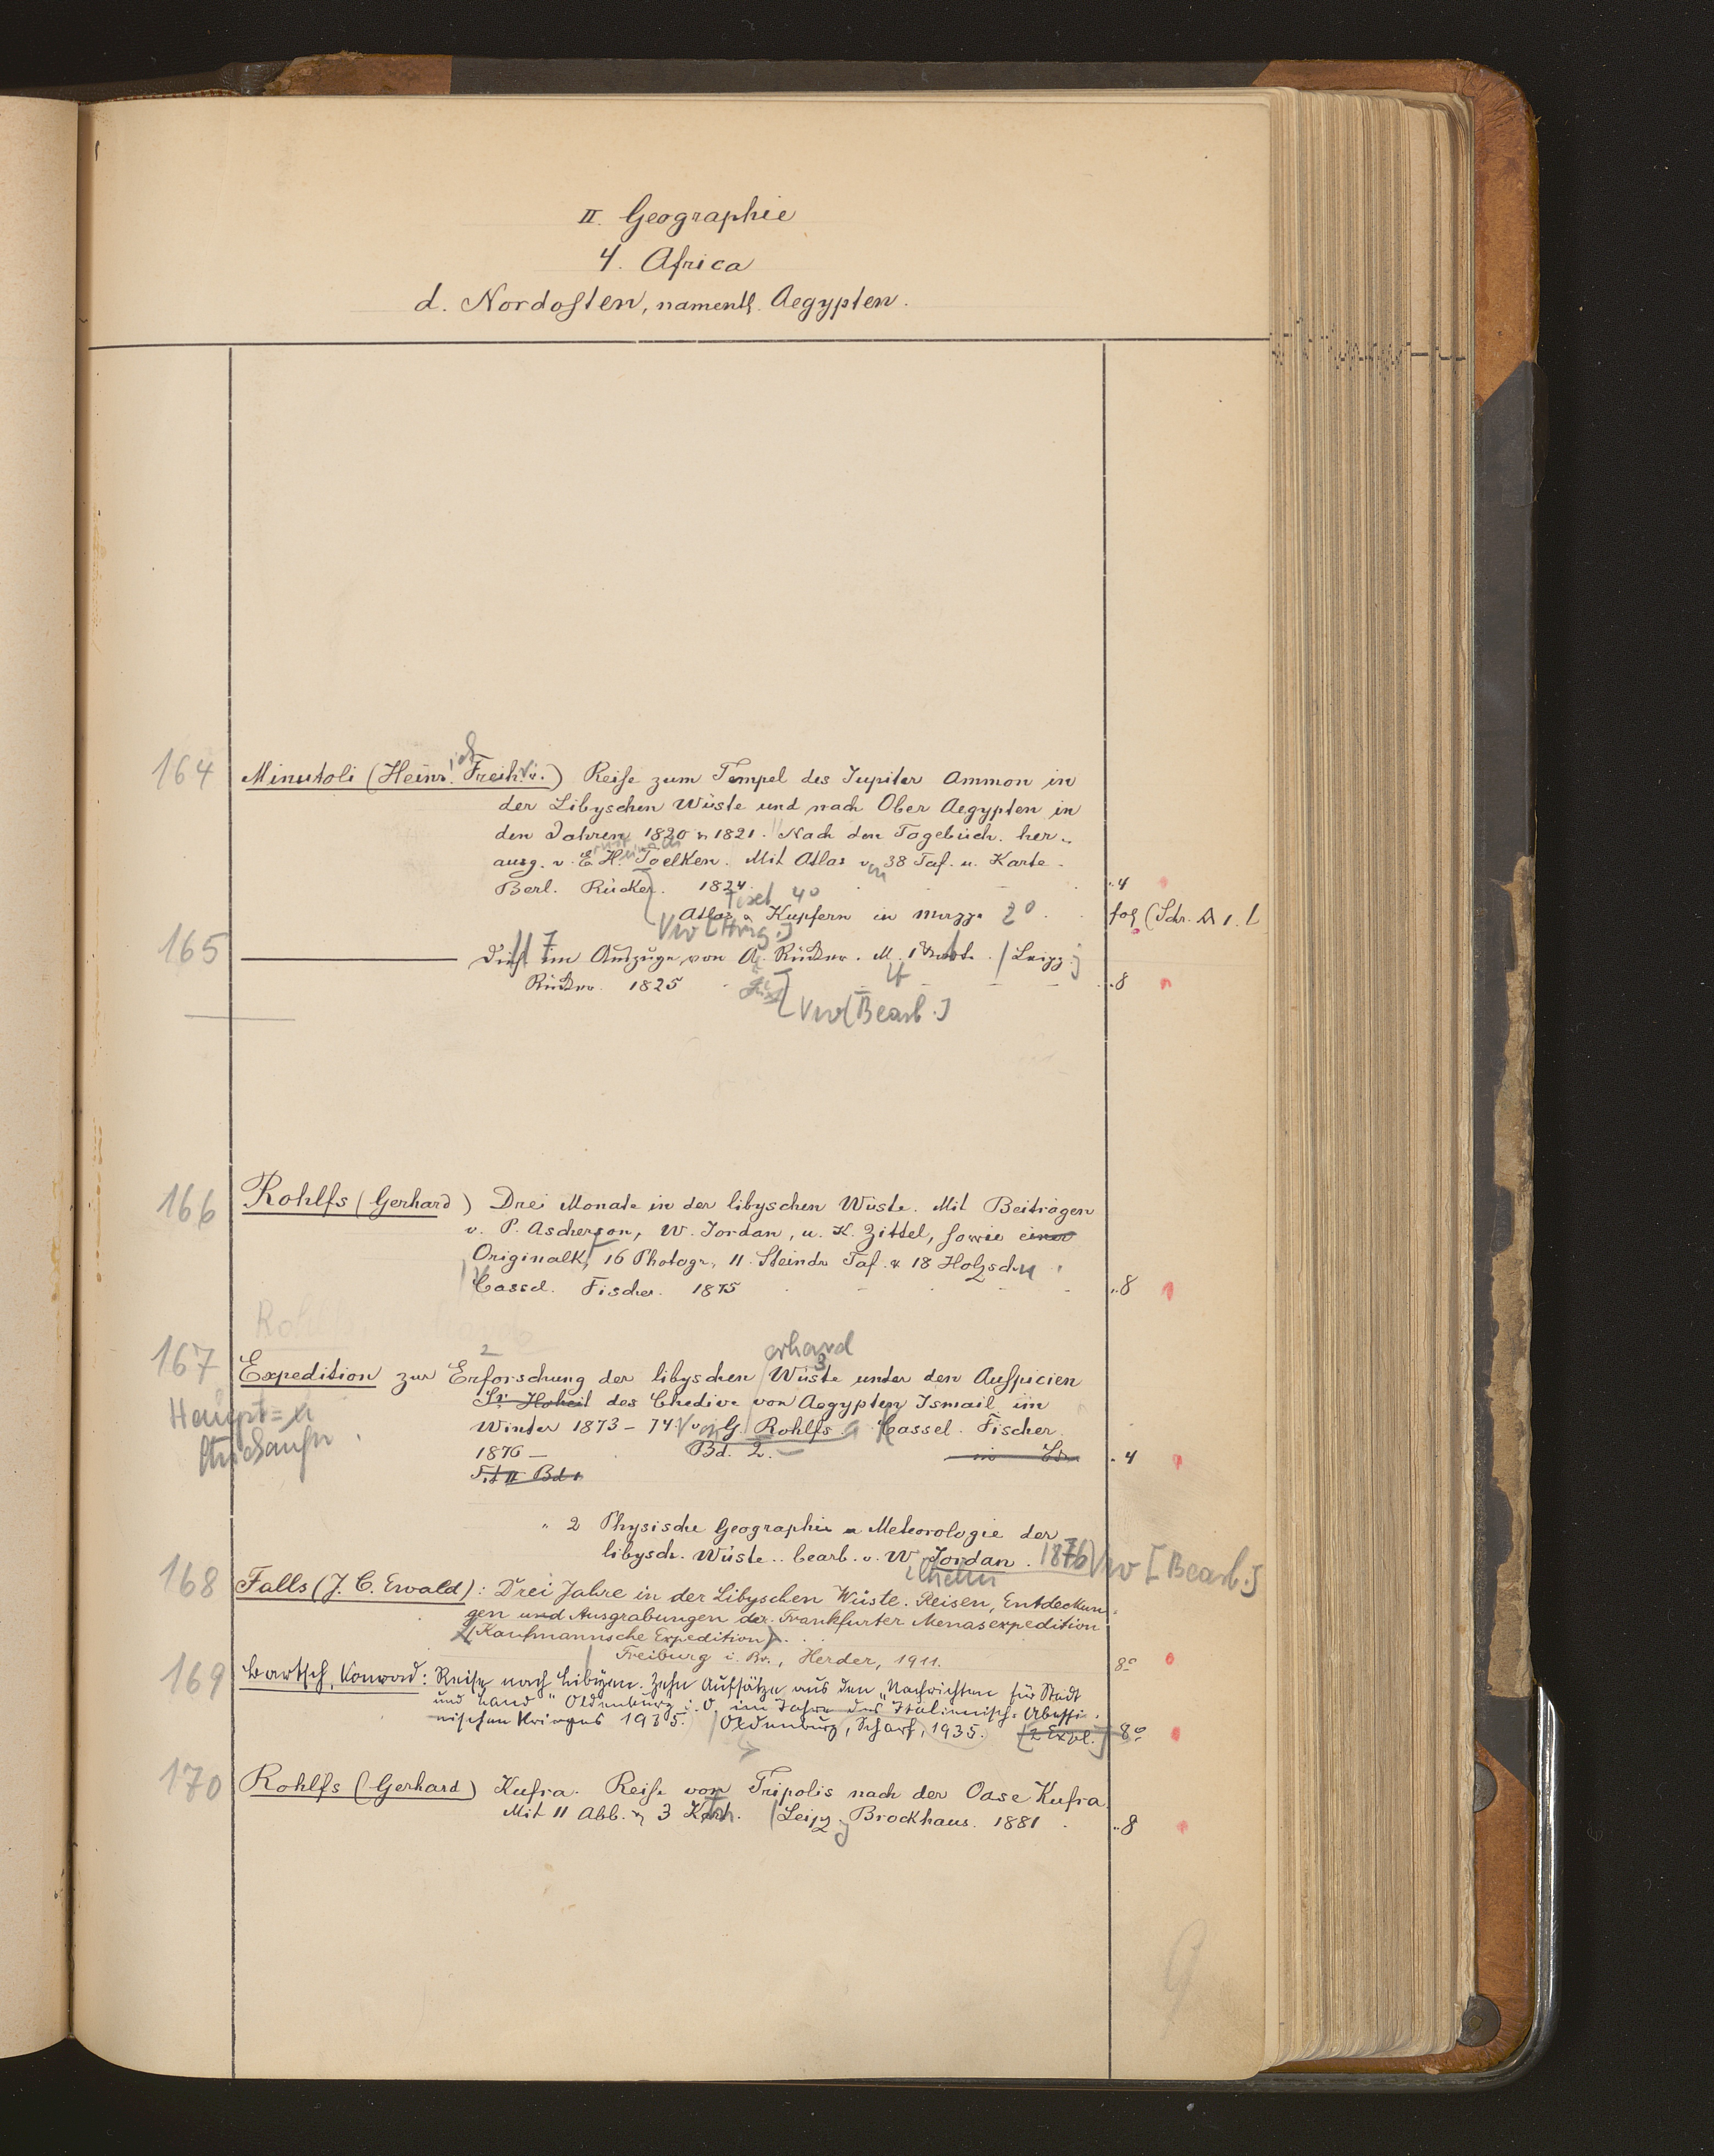 II. Geographie
4. Africa
d. Nordosten, namentl. Aegypten.
164 Minutoli (Heinr. Freih. v.) Reise zum Tempel des Jupiter Ammon in
der Libyschen Wüste und nach Ober Aegypten in
den Jahren 1820 u 1821. Nach den Tagebüch. her-
ausg. v. E. H. Toelken. Mit Atlas v. 38 Taf. u. Karte.
Berl. Rücker. 1824. 4
Atlas u Kupfern in Mappe 2° fol (Schr. A 1. l
Vw [Hrsg.]
165 Dies. im Auszuge von A. Rücker. M. 1 Karte. Leipz.
Rücker. 1825 8
Vw [Bearb.]
166 Rohlfs (Gerhard) Drei Monate in der libyschen Wüste. Mit Beiträgen
v. P. Ascherson, W. Jordan, u. K. Zittel, sowie einer
Originalk, 16 Photogr, 11 Steindr Taf. & 18 Holzschn.
Cassel. Fischer. 1875 8
erhard
167 Expedition zur Erforschung der libyschen Wüste unter den Auspicien
Sr. Hoheit des Chedive von Aegypten Ismail im
Winter 1873 – 74. v. G. Rohlfs. Cassel. Fischer.
Haupt=
1876 – Bd. 2. 4
Bd 1
" 2 Physische Geographie u Meteorologie der
libysch. Wüste.. bearb. v. W. Jordan. 1876 Vw [Bearb.]
ilhelm
168 Falls (J. C. Ewald): Drei Jahre in der Libyschen Wüste. Reisen, Entdeckun-
gen und Ausgrabungen der Frankfurter Menasexpedition
(Kaufmannsche Expedition).
Freiburg i. Br., Herder, 1911. 8°
169 Bartsch, Konrad: Reise nach Libyen. Zehn Aufsätze aus den "Nachrichten für Stadt
und Land" Oldenburg i. O. im Jahre des Italienisch-Abessi-
nischen Krieges 1935. Oldenburg, Scharf, 1935. [2 Expl.] 8°
170 Rohlfs (Gerhard) Kufra. Reise von Tripolis nach der Oase Kufra
Mit 11 Abb. u 3 Kart. Leipz. Brockhaus. 1881. 8